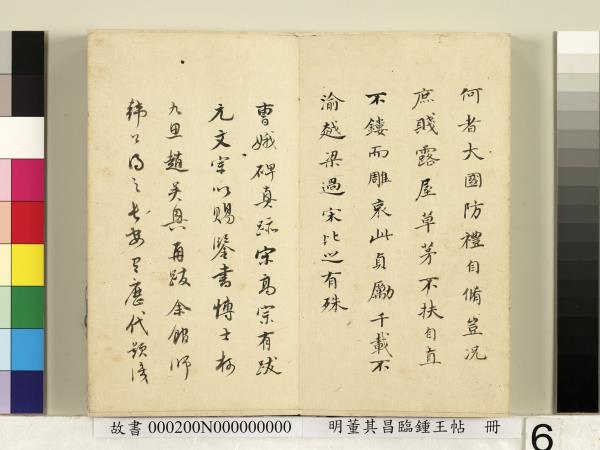 何者大國防禮自脩豈況
庶賤露屋草茅不扶自直
不鏤而雕哀此貞勵千載不
渝越梁過宋比之有殊
曹娥碑真跡宋高宗有跋
元文宗以賜鑒書博士柯
九思趙吳興再跋余館師
韓公得之長安 歷代題
故書 000200N000000000 明董其昌臨鍾王帖 冊
6